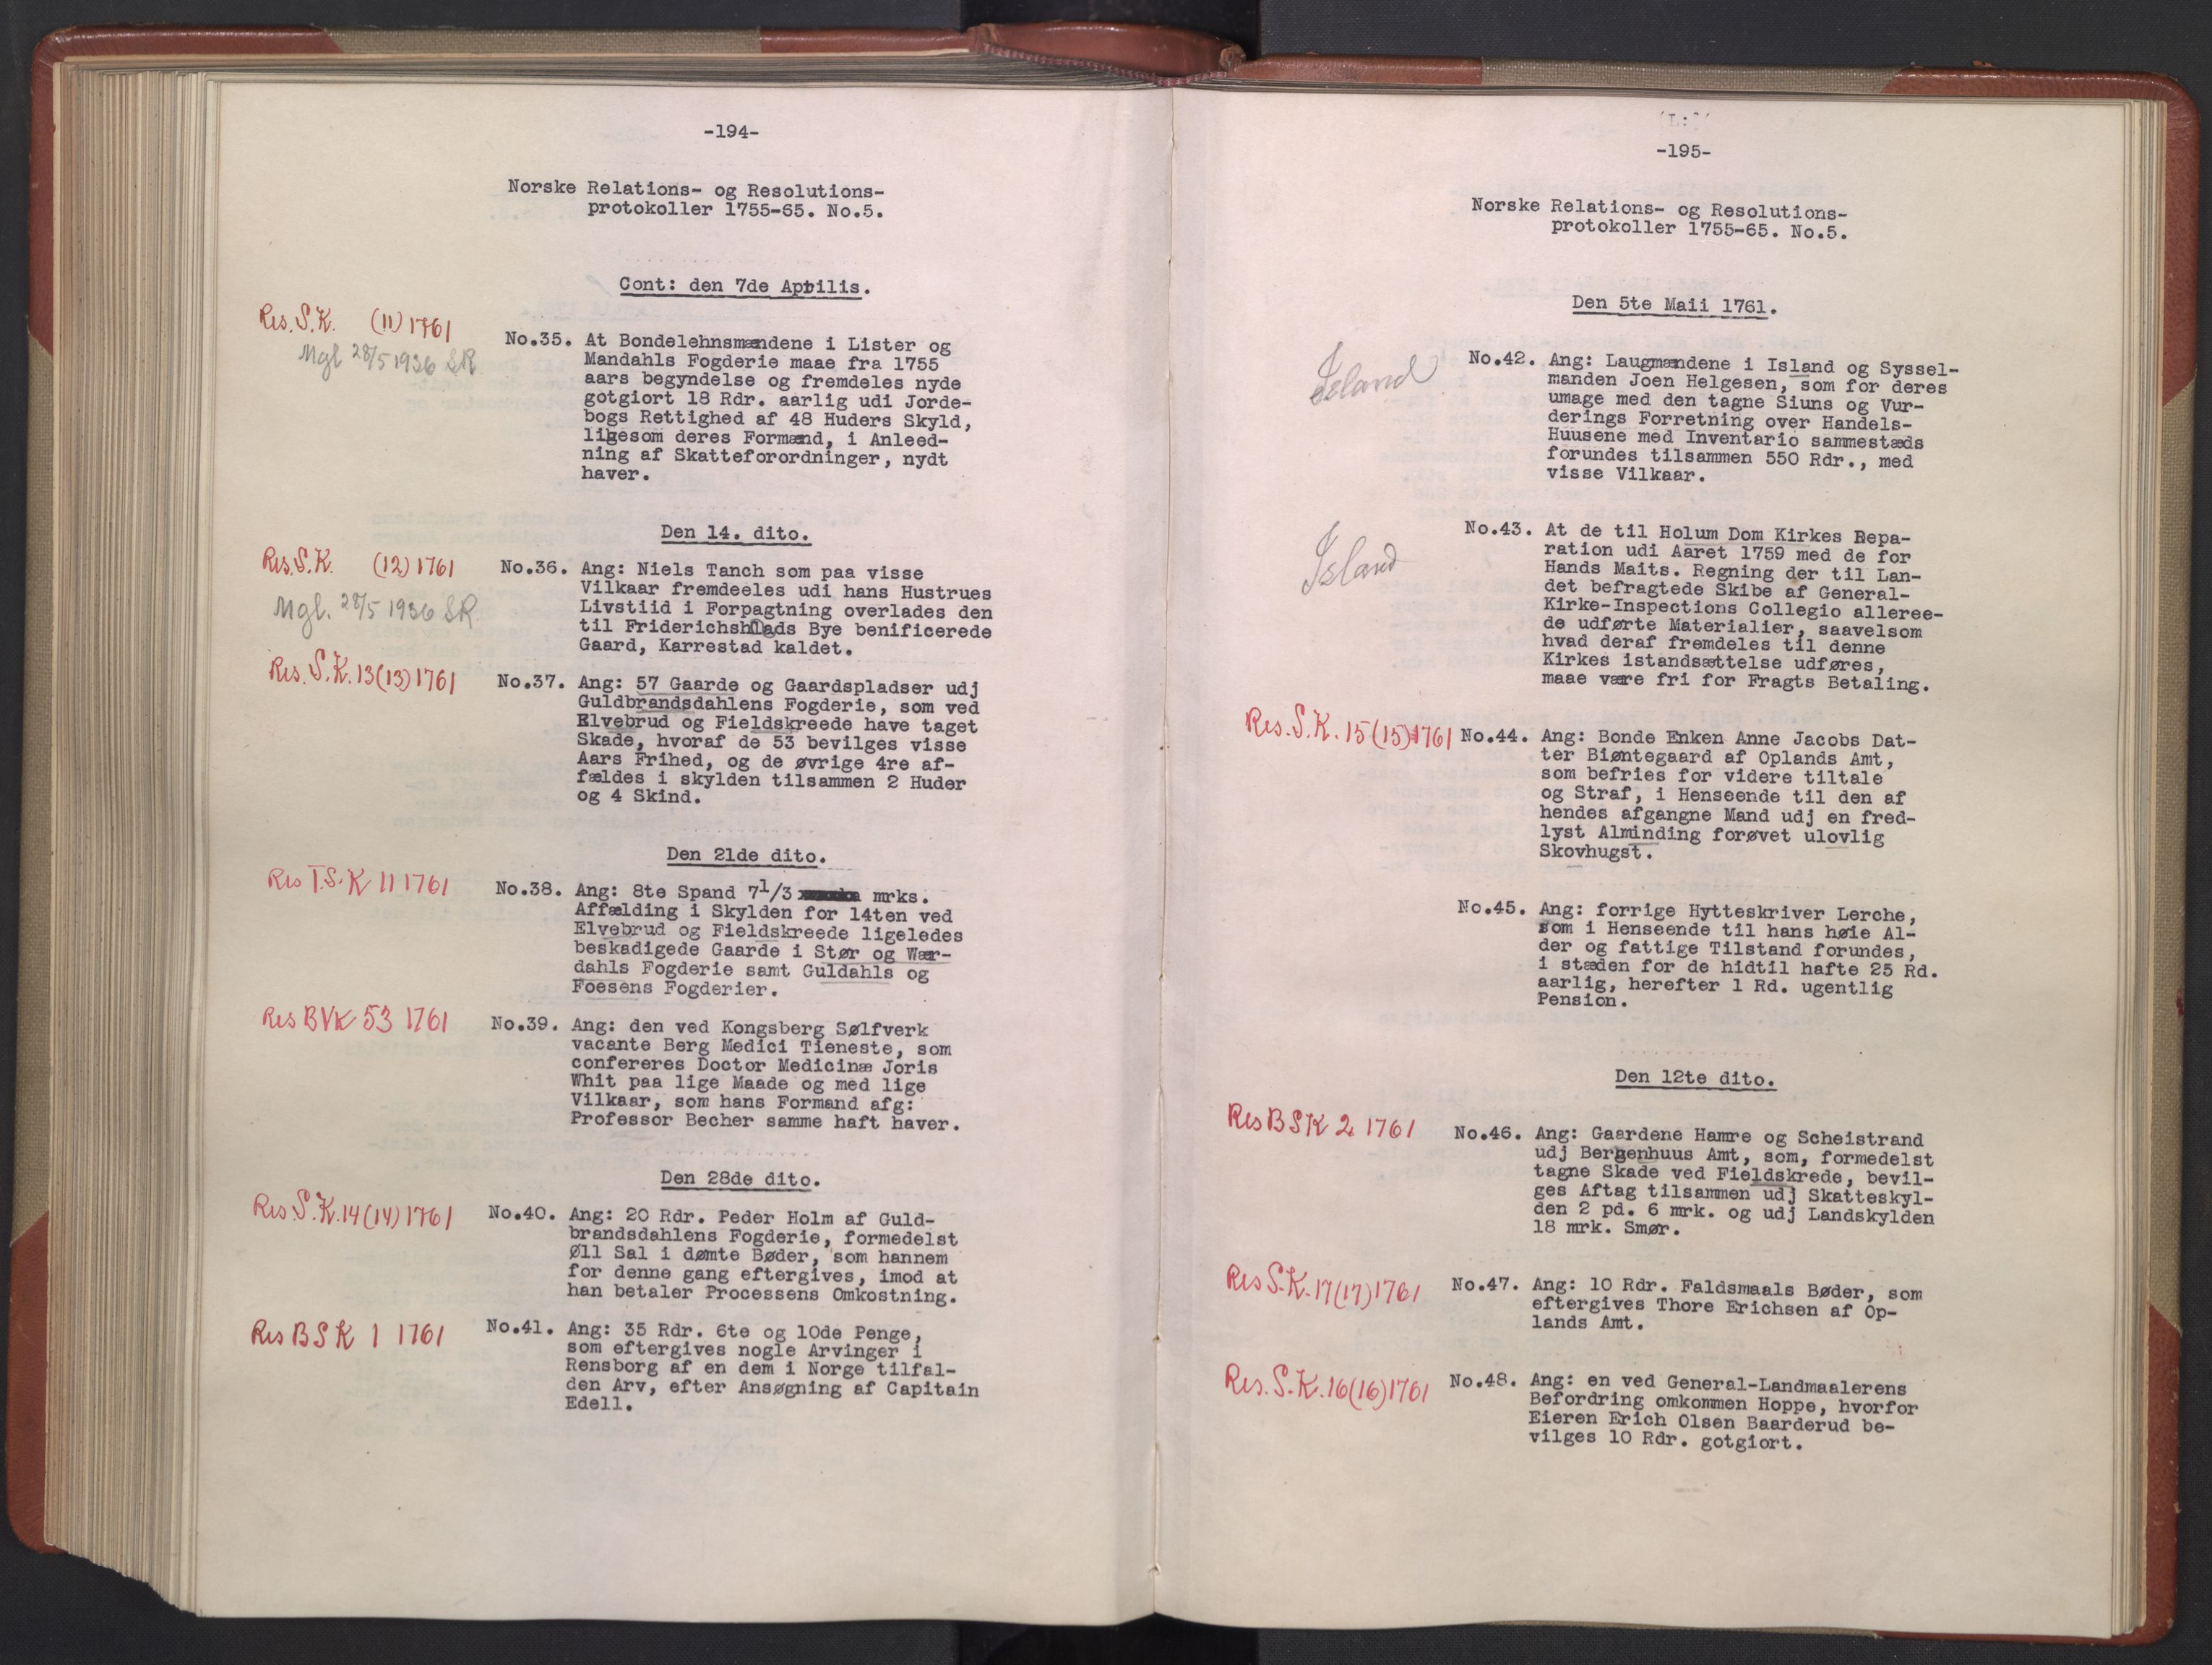 -194-
Norske Relations- og Resolutions-
protokoller 1755-65. No.5.
Cont: den 7de Aprilis.
Res. S.K. (11) 1761
Mgl 28/5 1936 SR
No.35. At Bondelehnsmændene i Lister og
Mandahls Fogderie maae fra 1755
aars begyndelse og fremdeles nyde
gotgiort 18 Rdr. aarlig udi Jorde-
bogs Rettighed af 48 Huders Skyld,
ligesom deres Formænd, i Anleed-
ning af Skatteforordninger, nydt
haver.
Den 14. dito.
Res. S.K. (12) 1761
Mgl. 28/5 1936 SR
No.36. Ang: Niels Tanch som paa visse
Vilkaar fremdeeles udi hans Hustrues
Livstiid i Forpagtning overlades den
til Friderichshalds Bye benificerede
Gaard, Karrestad kaldet.
Res. S.K. 13(13) 1761
No.37. Ang: 57 Gaarde og Gaardspladser udj
Guldbrandsdahlens Fogderie, som ved
Elvebrud og Fieldskreede have taget
Skade, hvoraf de 53 bevilges visse
Aars Frihed, og de øvrige 4re af-
fældes i skylden tilsammen 2 Huder
og 4 Skind.
Den 21de dito.
Res T.S.K 11 1761
No.38. Ang: 8te Spand 7 1/3 mrks.
Affælding i Skylden for 14ten ved
Elvebrud og Fieldskreede ligeledes
beskadigede Gaarde i Stør og Wær-
dahls Fogderie samt Guldahls og
Foesens Fogderier.
Res BVK 53 1761
No.39. Ang: den ved Kongsberg Sølfverk
vacante Berg Medici Tieneste, som
confereres Doctor Medicinæ Joris
Whit paa lige Maade og med lige
Vilkaar, som hans Formand afg:
Professor Becher samme haft haver.
Den 28de dito.
Res. S.K. 14(14) 1761
No.40. Ang: 20 Rdr. Peder Holm af Guld-
brandsdahlens Fogderie, formedelst
Øll Sal i dømte Bøder, som hannem
for denne gang eftergives, imod at
han betaler Processens Omkostning.
Res B S K 1 1761
No.41. Ang: 35 Rdr. 6te og 10de Penge,
som eftergives nogle Arvinger i
Rensborg af en dem i Norge tilfal-
den Arv, efter Ansøgning af Capitain
Edell.
-195-
Norske Relations- og Resolutions-
protokoller 1755-65. No.5.
Den 5te Maii 1761.
Island
No.42. Ang: Laugmændene i Island og Syssel-
manden Joen Helgesen, som for deres
umage med den tagne Siuns og Vur-
derings Forretning over Handels-
Huusene med Inventario sammestæds
forundes tilsammen 550 Rdr., med
visse Vilkaar.
Island
No.43. At de til Holum Dom Kirkes Repa-
ration udi Aaret 1759 med de for
Hands Maits. Regning der til Lan-
det befragtede Skibe af General-
Kirke-Inspections Collegio alleree-
de udførte Materialier, saavelsom
hvad deraf fremdeles til denne
Kirkes istandsættelse udføres,
maae være fri for Fragts Betaling.
Res. S.K. 15(15) 1761
No.44. Ang: Bonde Enken Anne Jacobs Dat-
ter Biøntegaard af Oplands Amt,
som befries for videre tiltale
og Straf, i Henseende til den af
hendes afgangne Mand udj en fred-
lyst Alminding forøvet ulovlig
Skovhugst.
No.45. Ang: forrige Hytteskriver Lerche,
som i Henseende til hans høie Al-
der og fattige Tilstand forundes,
i stæden for de hidtil hafte 25 Rd.
aarlig, herefter 1 Rd. ugentlig
Pension.
Den 12te dito.
Res B S K 2 1761
No.46. Ang: Gaardene Hamre og Scheistrand
udj Bergenhuus Amt, som, formedelst
tagne Skade ved Fieldskrede, bevil-
ges Aftag tilsammen udj Skatteskyl-
den 2 pd. 6 mrk. og udj Landskylden
18 mrk. Smør.
Res S.K. 17(17) 1761
No.47. Ang: 10 Rdr. Faldsmaals Bøder, som
eftergives Thore Erichsen af Op-
lands Amt.
Res. S.K. 16(16) 1761
No.48. Ang: en ved General-Landmaalerens
Befordring omkommen Hoppe, hvorfor
Eieren Erich Olsen Baarderud be-
vilges 10 Rdr. gotgiort.